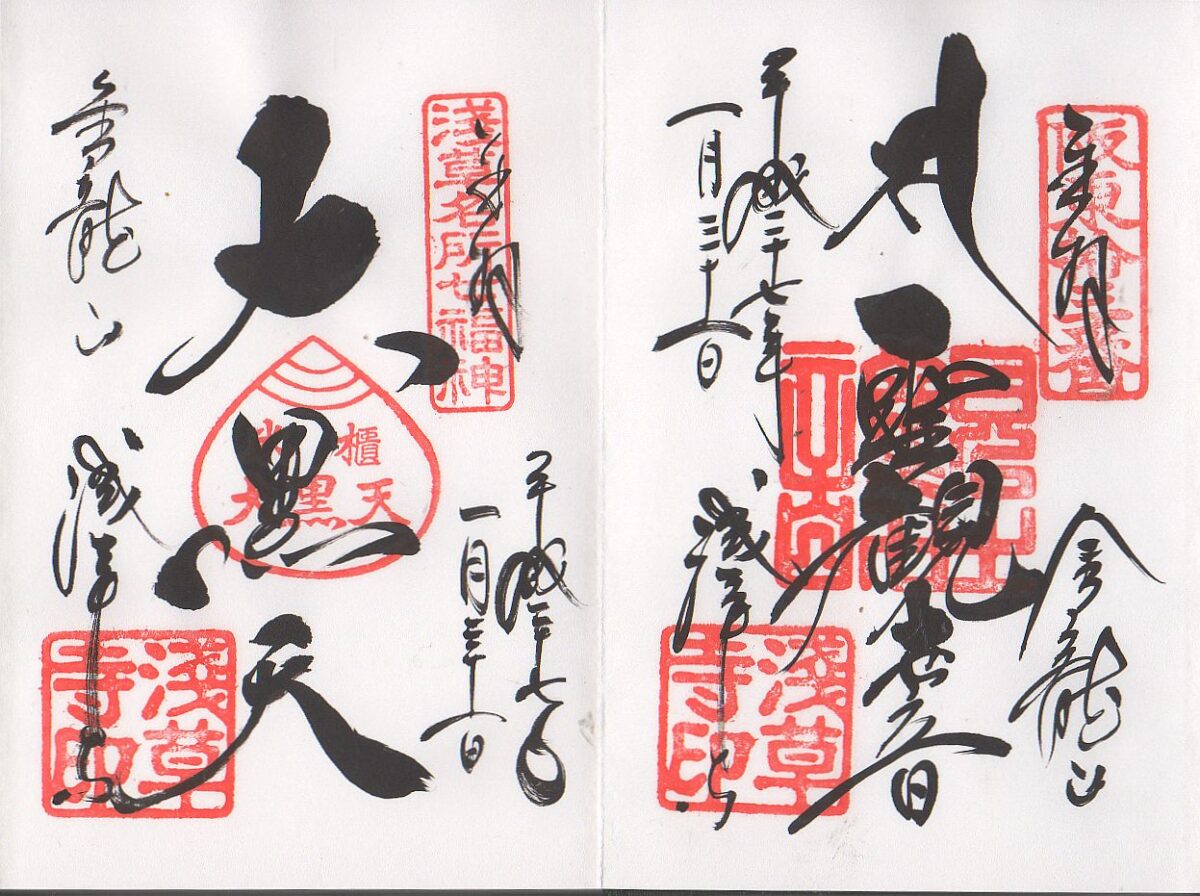 奉拝
阪東拾三番
金龍山
聖観世音
平成二十七年
一月三十一日
浅草寺
淺草寺印
淺草名所七福神
奉拝
平成二十七年
一月三十一日
大黒天
米櫃
大黒天
金龍山
浅草寺
淺草寺印